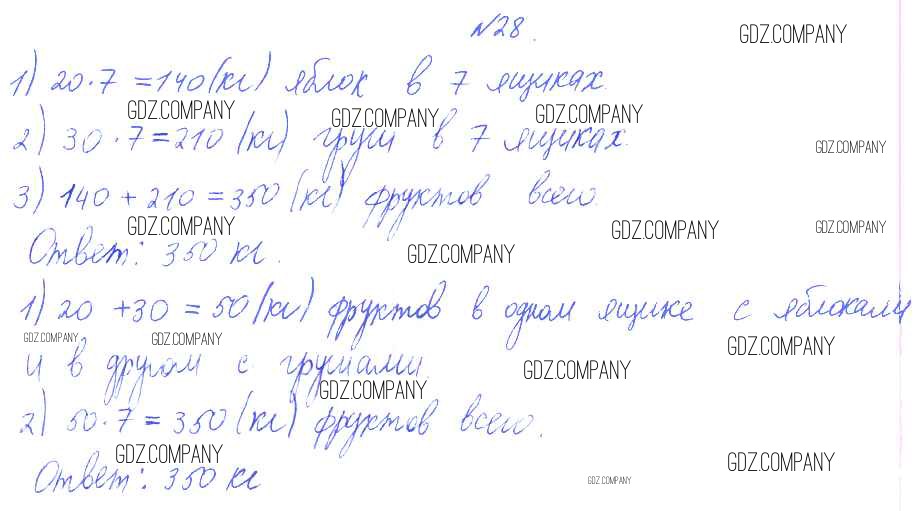 №28.
GDZ.COMPANY
1) 20·7 =140(кг) яблок в 7 ящиках.
GDZ.COMPANY GDZ.COMPANY GDZ.COMPANY
2) 30·7=210 (кг) груш в 7 ящиках.
GDZ.COMPANY
3) 140+210=350 (кг) фруктов всего.
GDZ.COMPANY GDZ.COMPANY GDZ.COMPANY
Ответ: 350 кг.
GDZ.COMPANY
1) 20 +30 = 50 (кг) фруктов в одном ящике с яблоками
GDZ.COMPANY GDZ.COMPANY GDZ.COMPANY
и в другом с грушами.
GDZ.COMPANY
GDZ.COMPANY
2) 50·7=350 (кг) фруктов всего.
GDZ.COMPANY GDZ.COMPANY
Ответ: 350 кг
GDZ.COMPANY